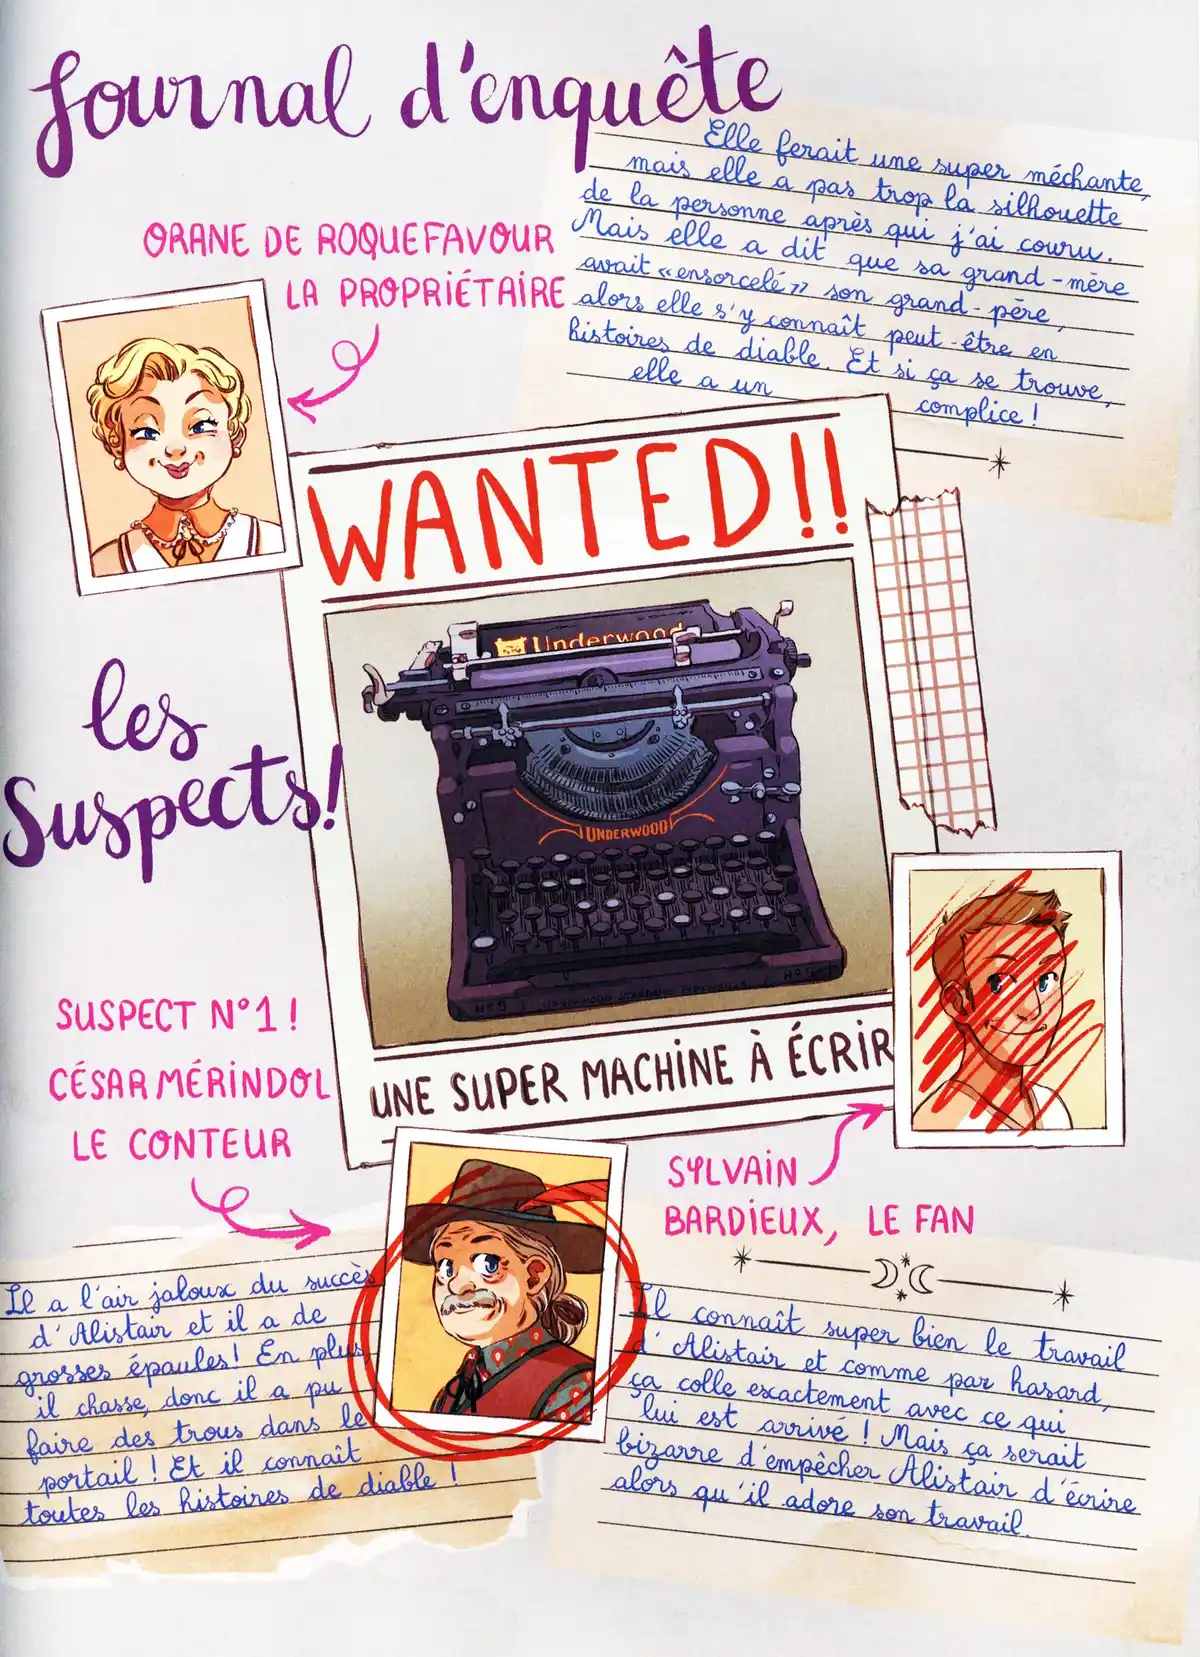 Journal d'enquête
Elle ferait une super méchante,
mais elle a pas trop la silhouette
de la personne après qui j'ai couru.
Mais elle a dit que sa grand-mère
avait «ensorcelé» son grand-père,
alors elle s'y connaît peut-être en
histoires de diable. Et si ça se trouve,
elle a un complice !
ORANE DE ROQUEFAVOUR
LA PROPRIÉTAIRE
WANTED!!
Underwood
UNDERWOOD
Nº5
Nº5
UNE SUPER MACHINE À ÉCRIR
les
Suspects!
SUSPECT N°1 !
CÉSAR MÉRINDOL
LE CONTEUR
Il a l'air jaloux du succès
d'Alistair et il a de
grosses épaules! En plus
il chasse, donc il a pu
faire des trous dans le
portail ! Et il connaît
toutes les histoires de diable !
SYLVAIN
BARDIEUX, LE FAN
Il connaît super bien le travail
d'Alistair et comme par hasard,
ça colle exactement avec ce qui
lui est arrivé ! Mais ça serait
bizarre d'empêcher Alistair d'écrire
alors qu'il adore son travail.